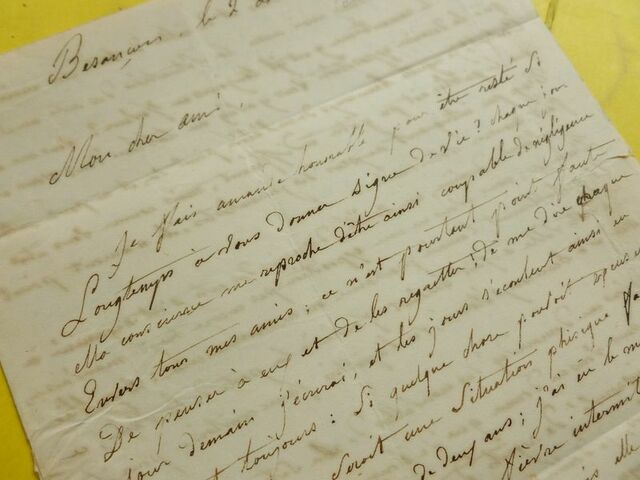 Besançon, le 2
Mon cher ami,
Je fais amande honorable pour être resté si
Longtemps à vous donner signe de vie? chaque jour
Ma conscience me reproche d'être ainsi coupable de négligence
Envers tous mes amis; ce n'est pourtant point faute
De penser à eux et de les regretter; de me dire chaque
jour demain j'écrirai, et les jours s'écoulent ainsi en
toujours: Si quelque chose pouvoit
Seroit une Situation phisique
de deux ans; j'ai eu le
fièvre
elle